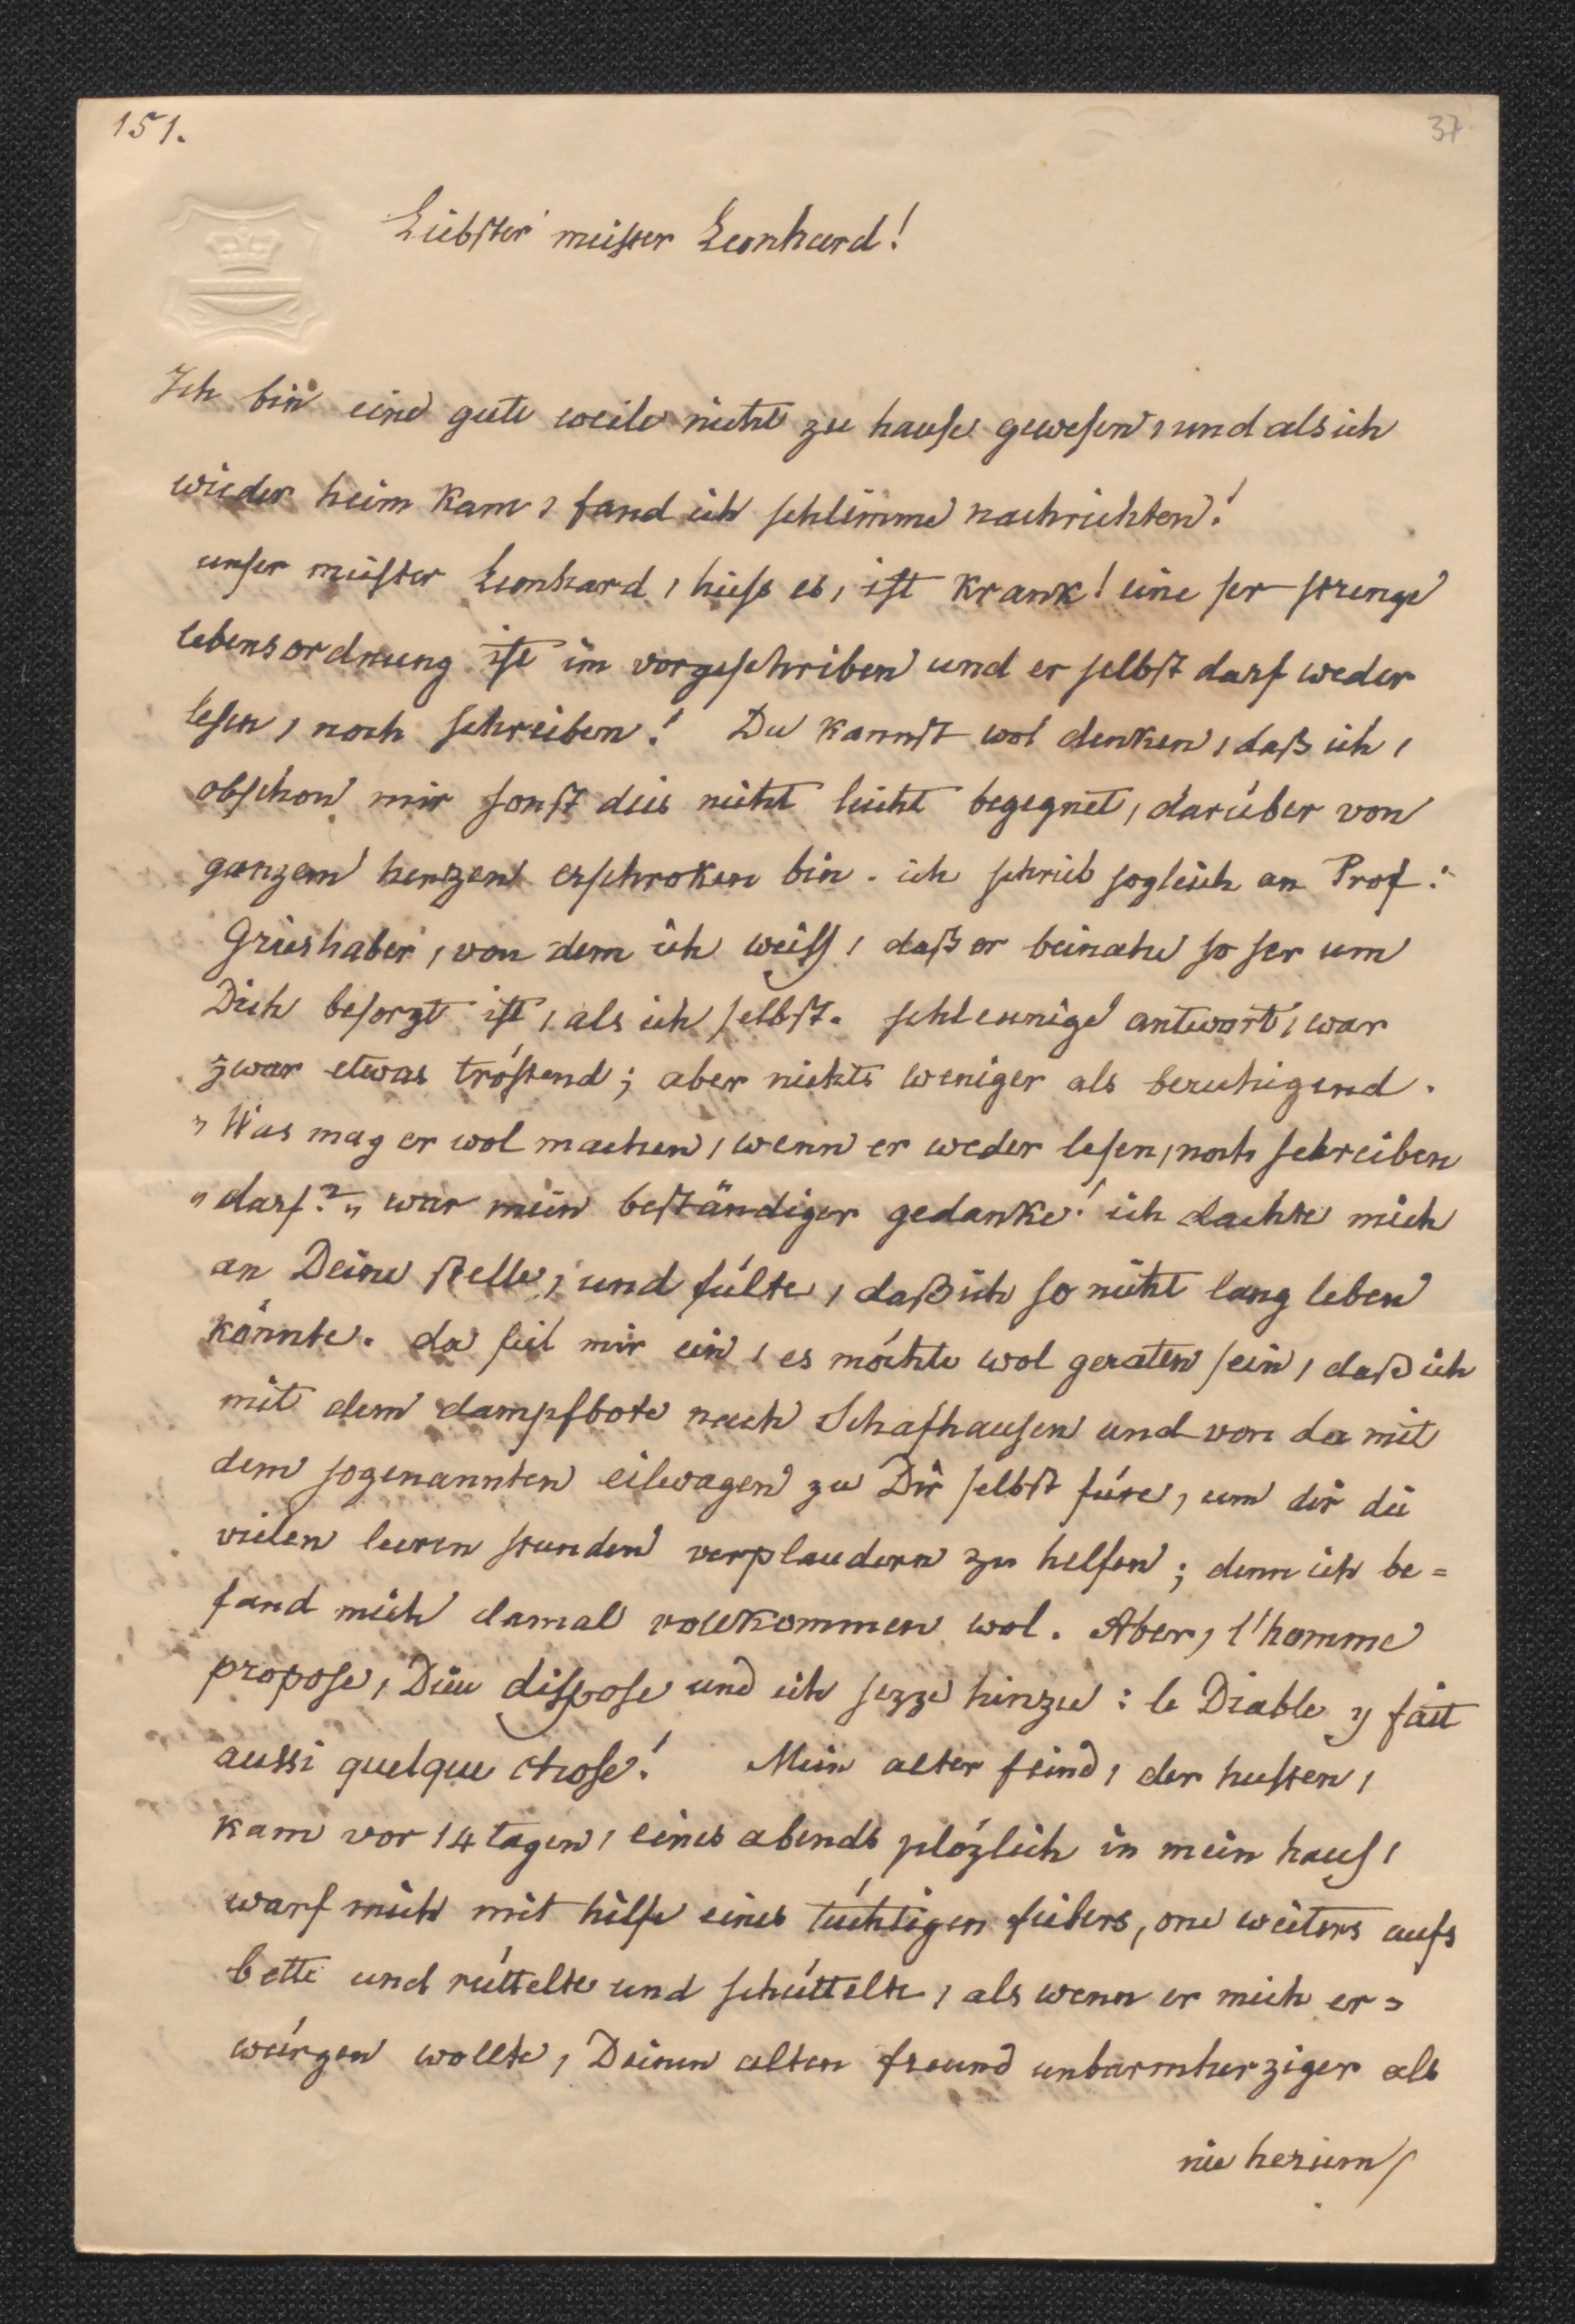 151.
37
Liebster meister Leonhard!
Ich bin eine gute weile nicht zu hause gewesen, und als ich
wieder heim kam, fand ich schlimme nachrichten!
unser meister Leonhard, hiess es, ist krank! eine ser strenge
lebensordnung ist im vorgeschriben und er selbst darf weder
lesen, noch schreiben! Du kannst wol denken, daß ich,
obschon mir sonst dies nicht leicht begegnet, darüber von
ganzem herzen erschroken bin. ich schrieb sogleich an Prof:
Grieshaber, von dem ich weiss, daß er beinahe so ser um
Dich besorgt ist, als ich selbst. schleunige antwort, war
zwar etwas tröstend; aber nichts weniger als beruhigend.
„Was mag er wol machen, wenn er weder lesen, noch schreiben
„darf?„ war mein beständiger gedanke! ich dachte mich
an Deine stelle, und fülte, daß ich so nicht lang leben
könnte. da fiel mir ein, es möchte wol geraten sein, daß ich
mit dem dampfbote nach Schafhausen und von da mit
dem sogenannten eilwagen zu Dir selbst füre, um dir die
vielen leeren stunden verplaudern zu helfen; denn ich be=
fand mich damal vollkommen wol. Aber, l'homme
propose, Dieu dispose und ich sezze hinzu: le Diable y fait
aussi quelque chose! Mein alter feind, der husten,
kam vor 14 tagen, eines abends plözlich in mein haus,
warf mich mit hilfe eines tüchtigen fiebers, one weiters aufs
bette und rüttelte und schüttelte, als wenn er mich er=
würgen wollte, Deinen alten freund unbarmherziger als
nie herum/